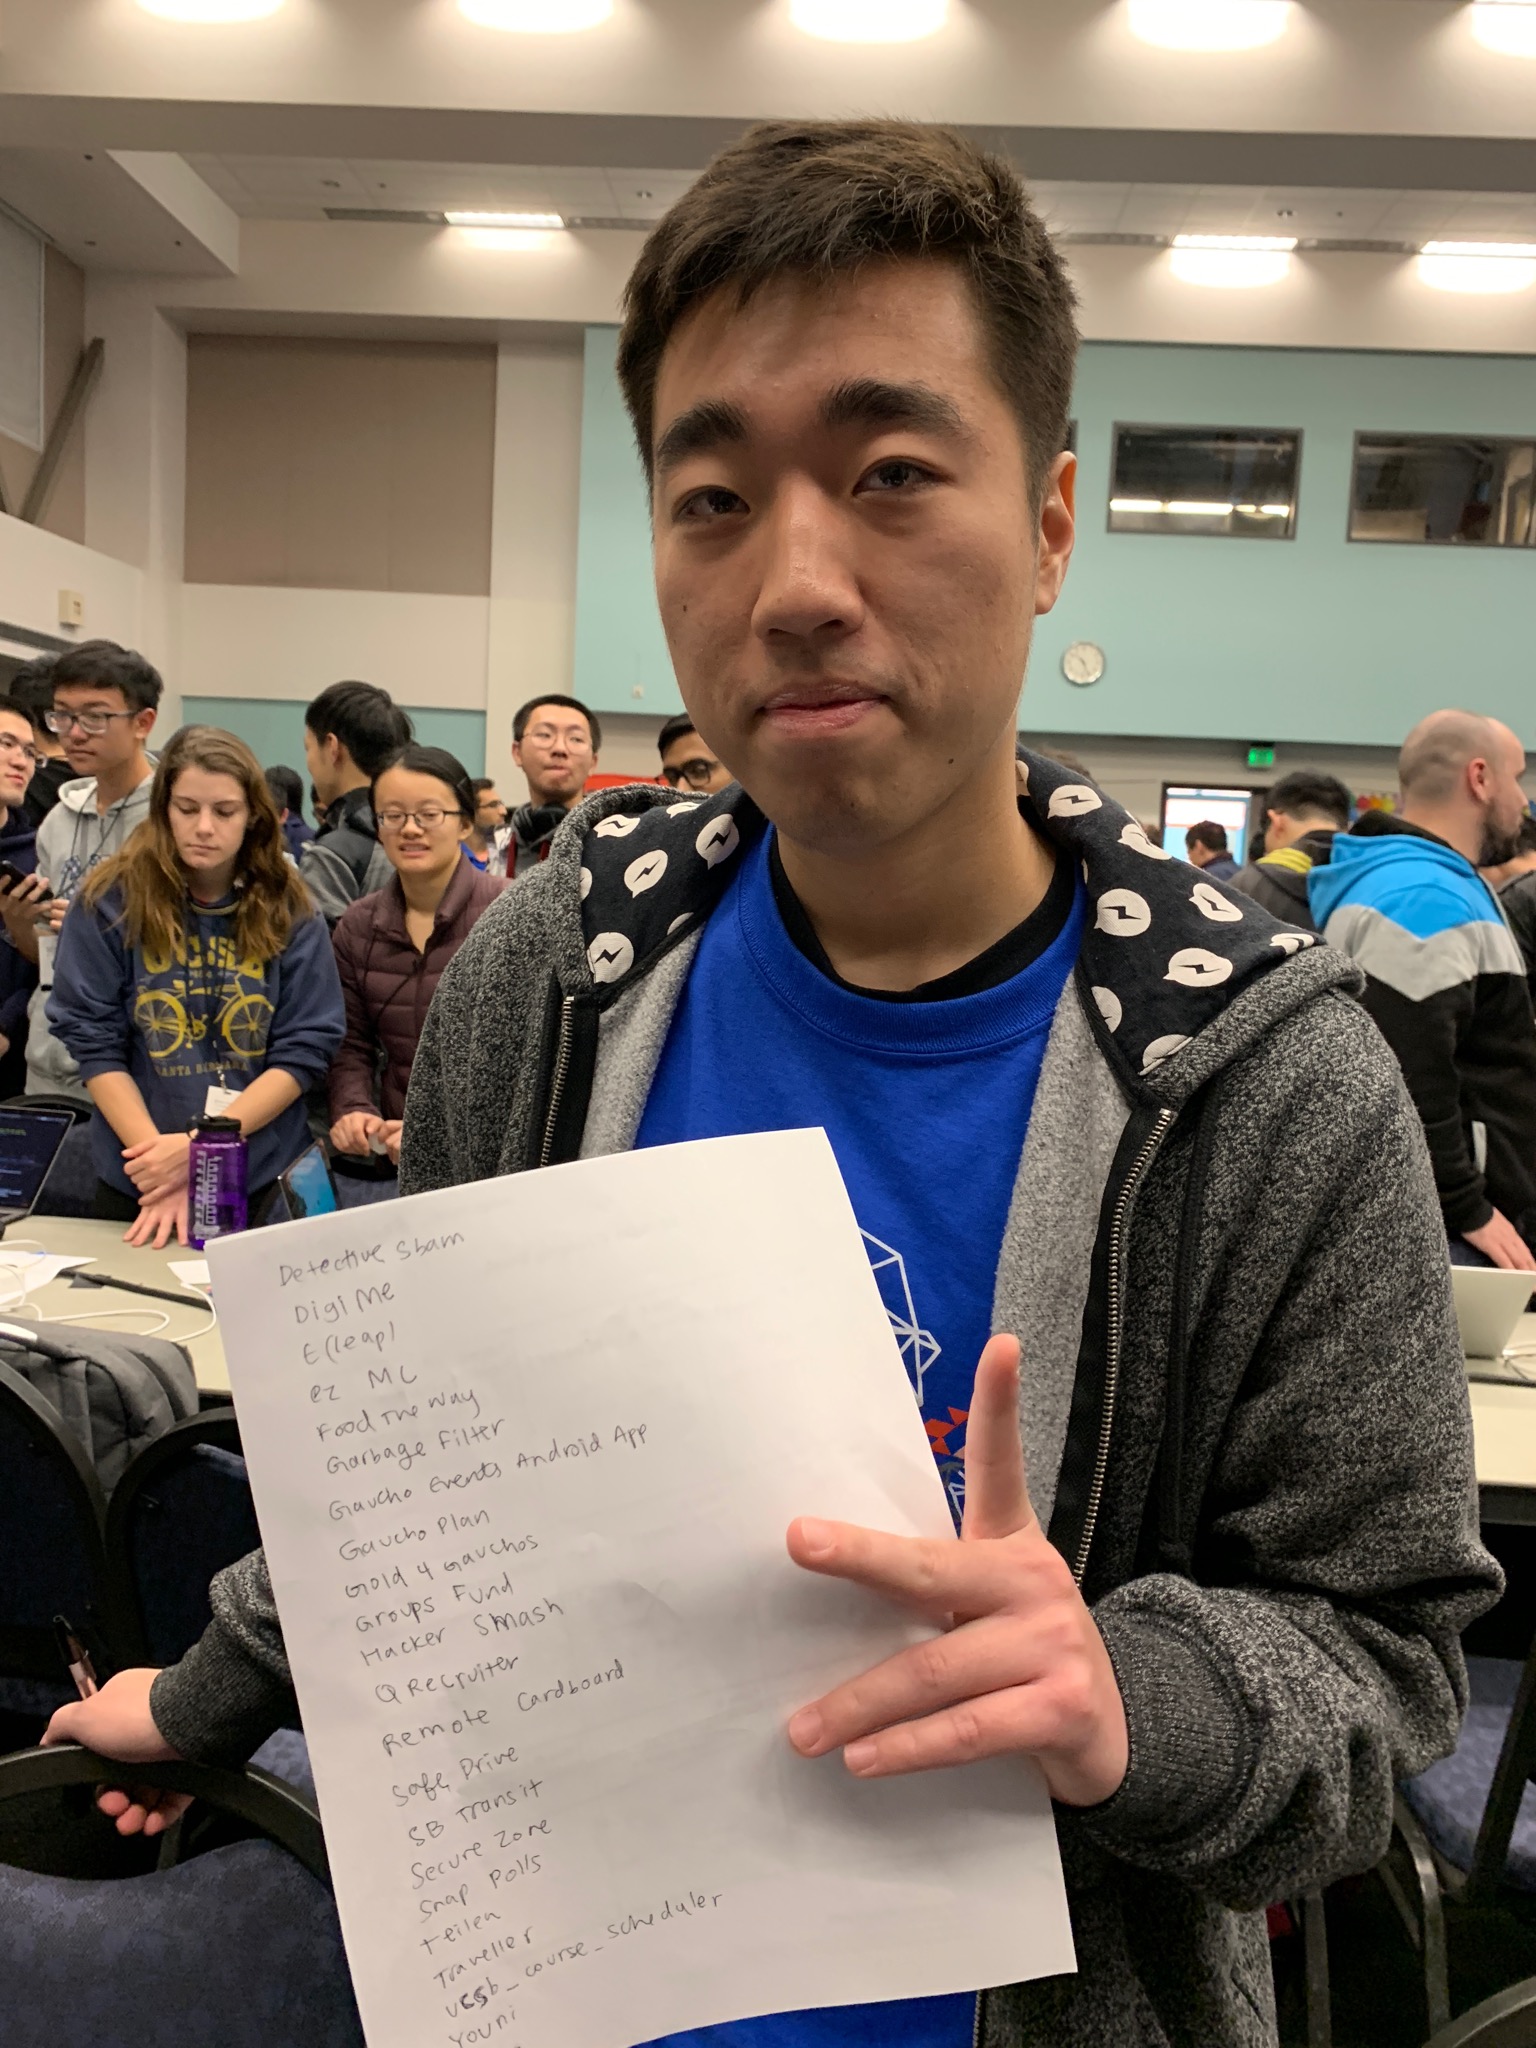 UCSB
SANTA BARBARA
Detective Sbam
DigiMe
E(leap)
ez ML
Food The Way
Garbage Filter
Gaucho Events Android App
Gaucho Plan
Gold 4 Gauchos
Groups Fund
Hacker Smash
QRecruiter
Remote Cardboard
Safe Drive
SB Transit
Secure Zone
Snap Polls
teilen
Traveller
ucsb_course_scheduler
Youni